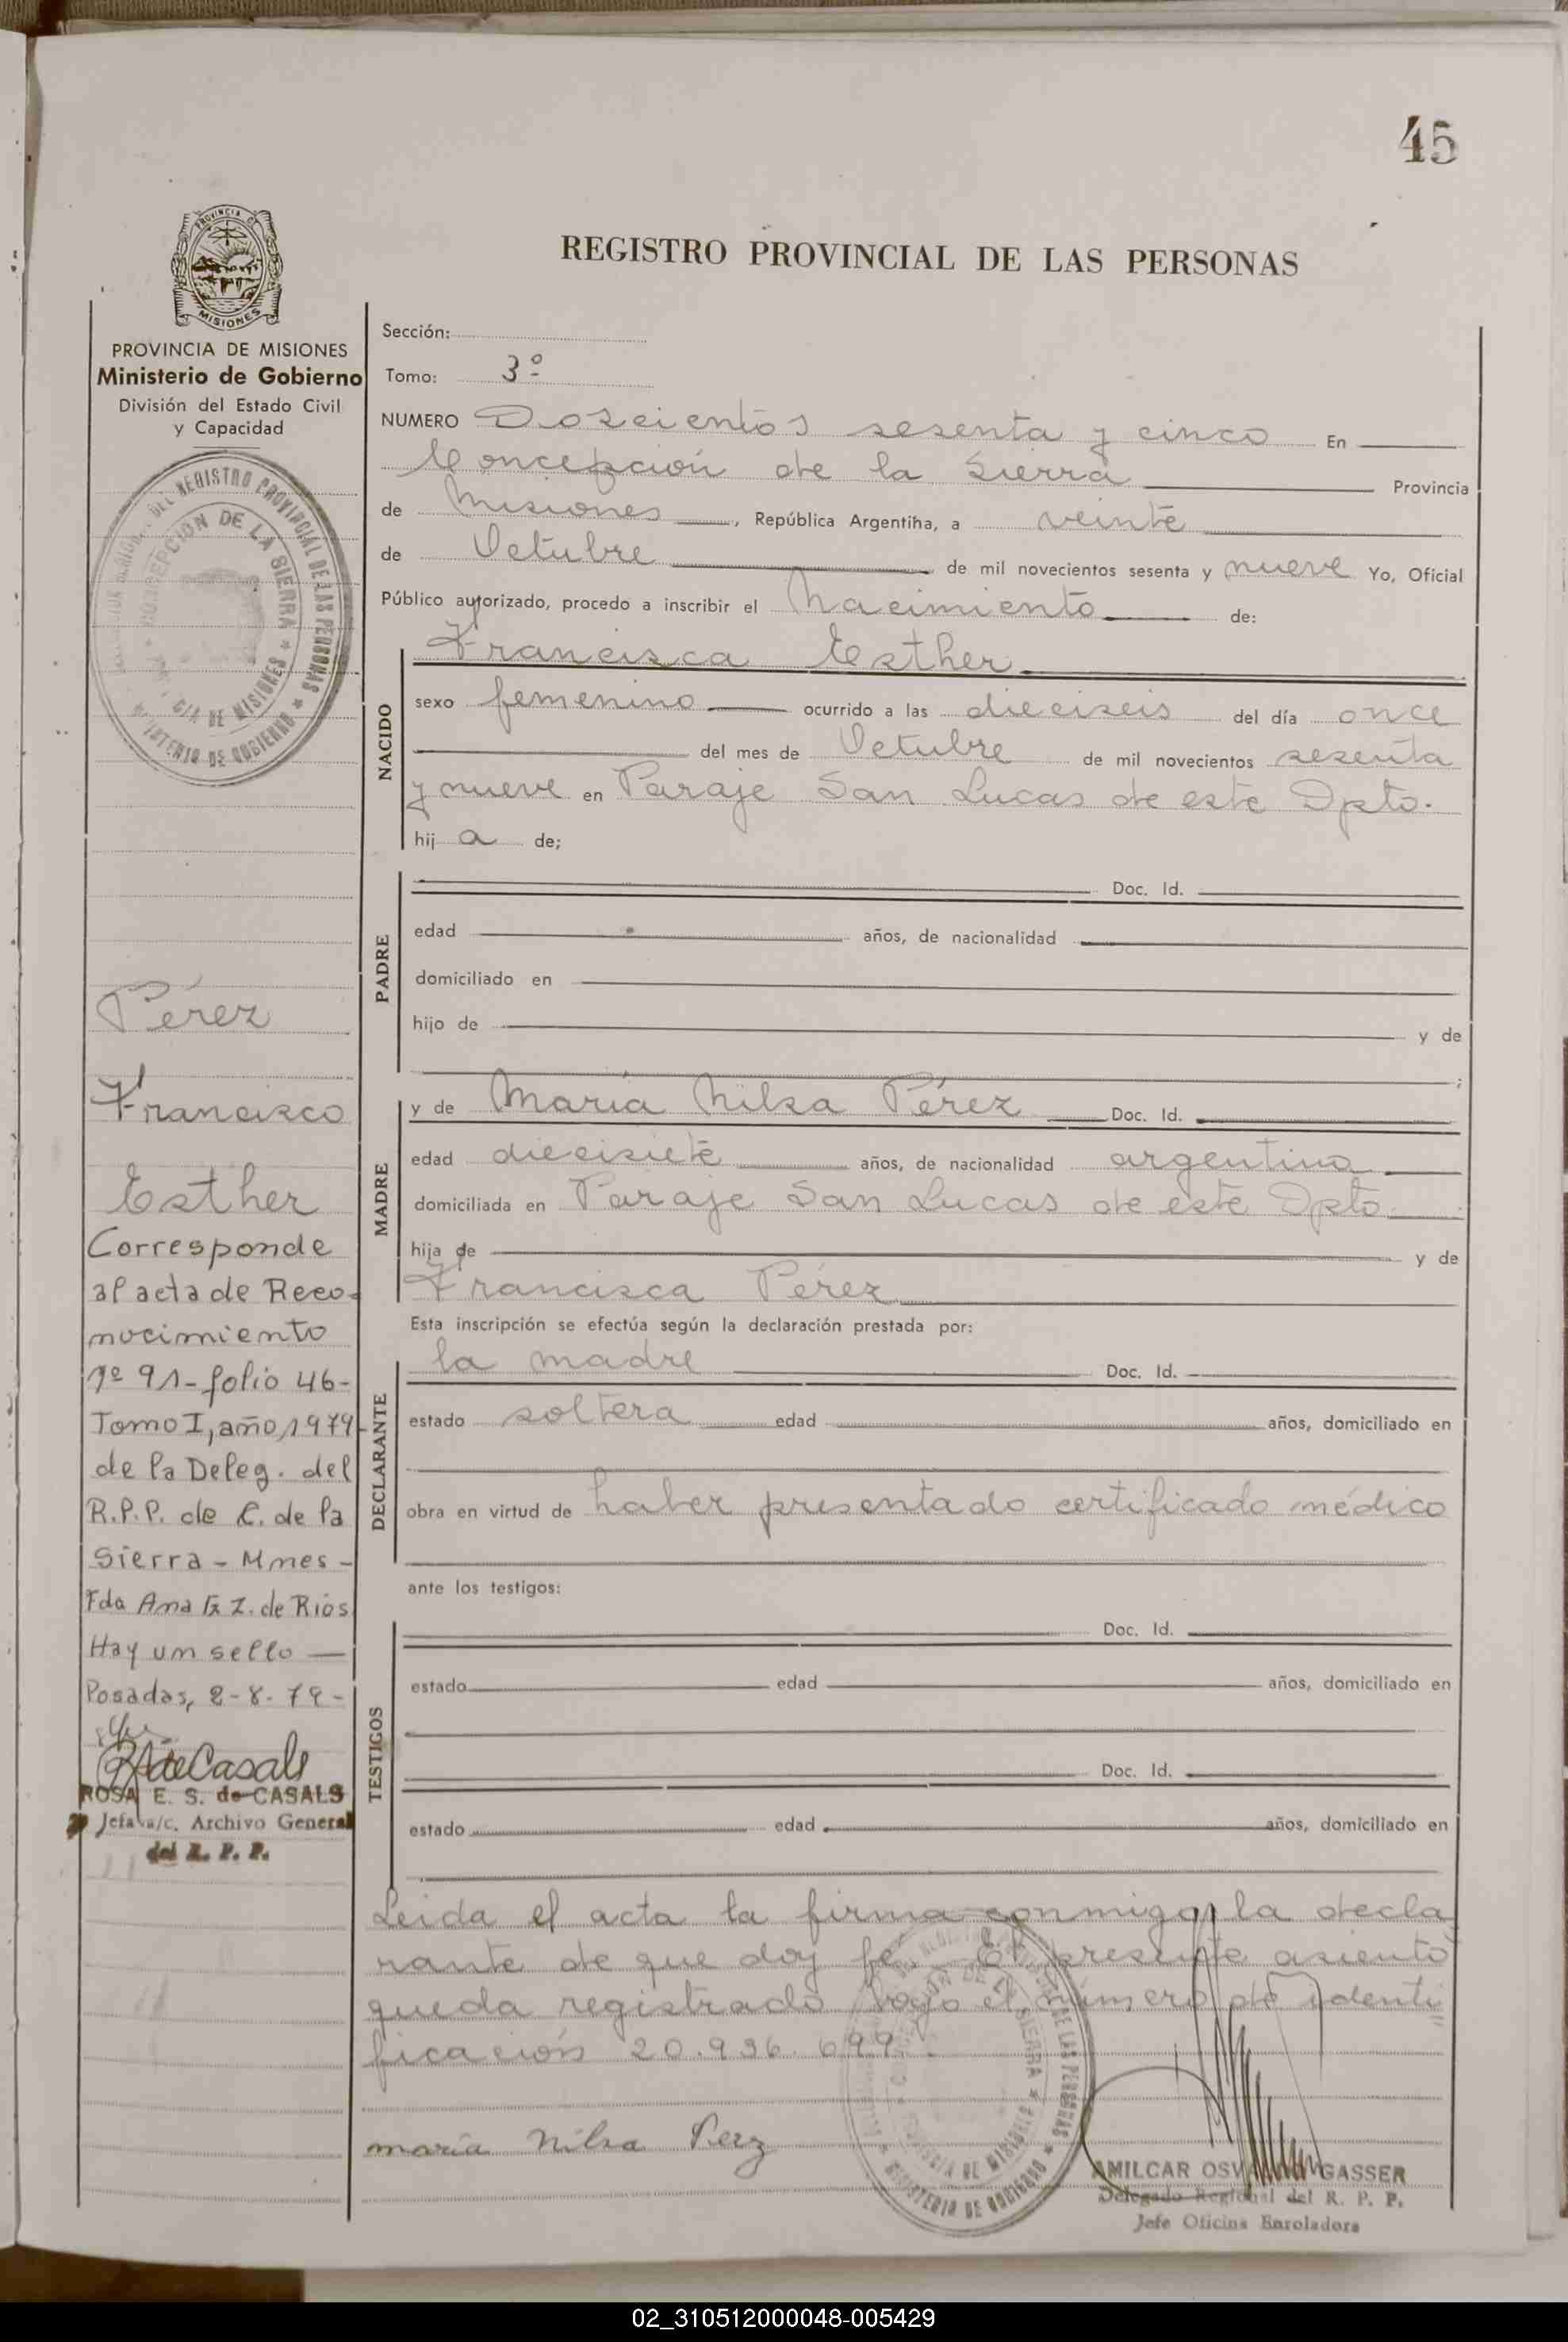 45
PROVINCIA DE
MISIONES
REGISTRO PROVINCIAL DE LAS PERSONAS
PROVINCIA DE MISIONES
Ministerio de Gobierno
División del Estado Civil
y Capacidad
DEL REGISTRO PROVINCIAL DE LAS PERSONAS
CONCEPCION DE LA SIERRA
CIA DE MISIONES
MINISTERIO DE GOBIERNO
Pérez
Francisco
Esther
Corresponde
al acta de Reco-
nocimiento
nº 91 - folio 46-
Tomo I, año, 1979-
de la Deleg. del
R.P.P. de C. de la
Sierra - Mnes -
Fda Ana Z. de Rios
Hay un sello —
Posadas, 2-8-79-
ROSA E. S. de CASALS
Jefa a/c. Archivo General
del R. P. P.
Sección:
Tomo: 3º
NUMERO Doscientos sesenta y cinco En
Concepción de la Sierra Provincia
de Misiones, República Argentina, a veinte
de Octubre de mil novecientos sesenta y nueve Yo, Oficial
Público autorizado, procedo a inscribir el Nacimiento de:
NACIDO
Francisca Esther
sexo femenino ocurrido a las dieciseis del día once
del mes de Octubre de mil novecientos sesenta
y nueve en Paraje San Lucas de este Dpto.
hij a de;
PADRE
Doc. Id.
edad años, de nacionalidad
domiciliado en
hijo de y de
;
MADRE
y de María Nilsa Pérez Doc. Id.
edad diecisiete años, de nacionalidad argentina
domiciliada en Paraje San Lucas de este Dpto
hija de y de
Francisca Pérez
Esta inscripción se efectúa según la declaración prestada por:
DECLARANTE
la madre Doc. Id.
estado soltera edad años, domiciliado en
obra en virtud de haber presentado certificado médico
ante los testigos:
TESTIGOS
Doc. Id.
estado edad años, domiciliado en
Doc. Id.
estado edad años, domiciliado en
Leida el acta la firma conmigo la decla
rante de que doy fe. El presente asiento
queda registrado bajo el número de identi
ficación 20.936.699.
maria Nilsa Perz
DE LA SIERRA
DE LAS PERSONAS
PROVINCIA DE MISIONES
MINISTERIO DE GOBIERNO
AMILCAR OSVALDO GASSER
Delegado Regional del R. P. P.
Jefe Oficina Enroladora
02_310512000048-005429